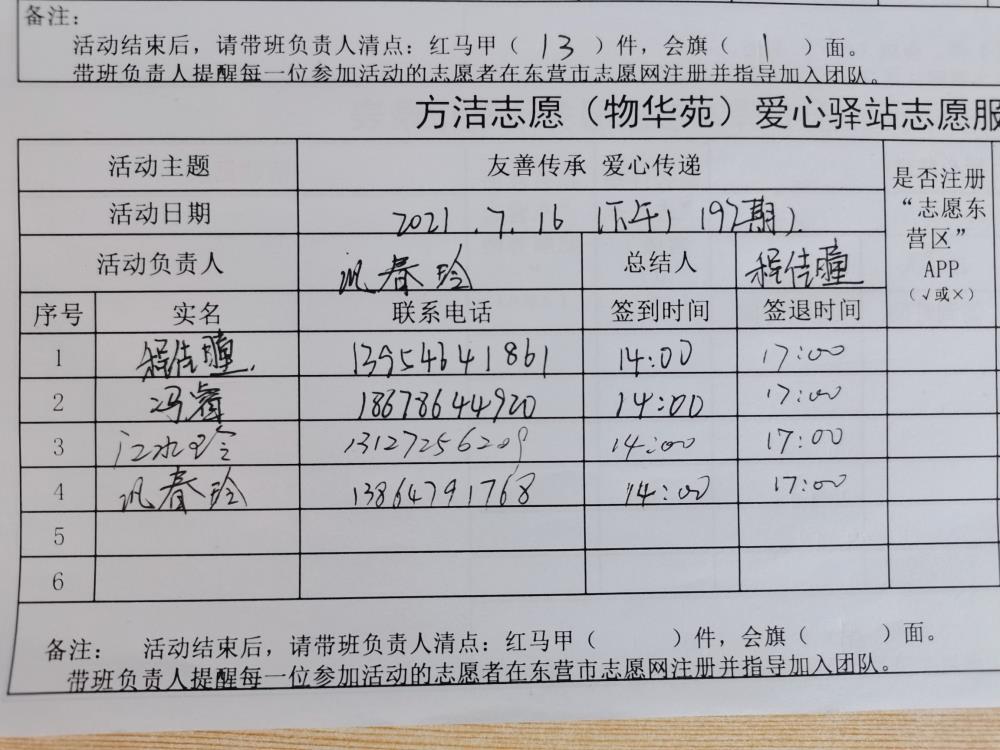 备注:
活动结束后，请带班负责人清点：红马甲（ 13 ）件，会旗（ 1 ）面。
带班负责人提醒每一位参加活动的志愿者在东营市志愿网注册并指导加入团队。
方洁志愿（物华苑）爱心驿站志愿服
活动主题 友善传承 爱心传递 是否注册“志愿东营区”APP（√或×）
活动日期 2021.7.16（下午）（92期）.
活动负责人 春玲 总结人 程佳瞳
序号 实名 联系电话 签到时间 签退时间
1 程佳瞳. 13954641861 14:00 17:00
2 冯睿 18678644920 14:00 17:00
3 江水玲 13127256209 14:00 17:00
4 春玲 13864791768 14:00 17:00
5
6
备注： 活动结束后，请带班负责人清点：红马甲（ ）件，会旗（ ）面。
带班负责人提醒每一位参加活动的志愿者在东营市志愿网注册并指导加入团队。